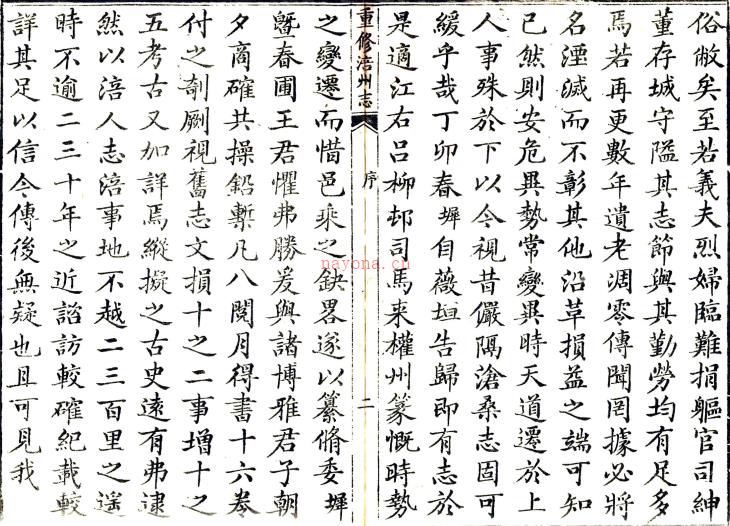 俗敝矣至若義夫烈婦臨難捐軀官司紳
董存城守隘其志節與其勤勞均有足多
焉若再更數年遺老凋零傳聞罔據必將
名湮滅而不彰其他沿革損益之端可知
已然則安危異勢常變異時天道遷於上
人事殊於下以今視昔儼隔滄桑志固可
緩乎哉丁卯春墀自薇垣告歸即有志於
是適江右呂柳邨司馬來權州篆慨時勢
重修涪州志
序
二
之變遷而惜邑乘之缺畧遂以纂脩委墀
曁春圃王君懼弗勝爰與諸博雅君子朝
夕商確共操鉛槧凡八閱月得書十六卷
付之剞劂視舊志文損十之二事增十之
五考古又加詳焉縱擬之古史遠有弗逮
然以涪人志涪事地不越二三百里之遥
時不逾二三十年之近諮訪較確紀載較
詳其足以信今傳後無疑也且可見我
nayona.cn